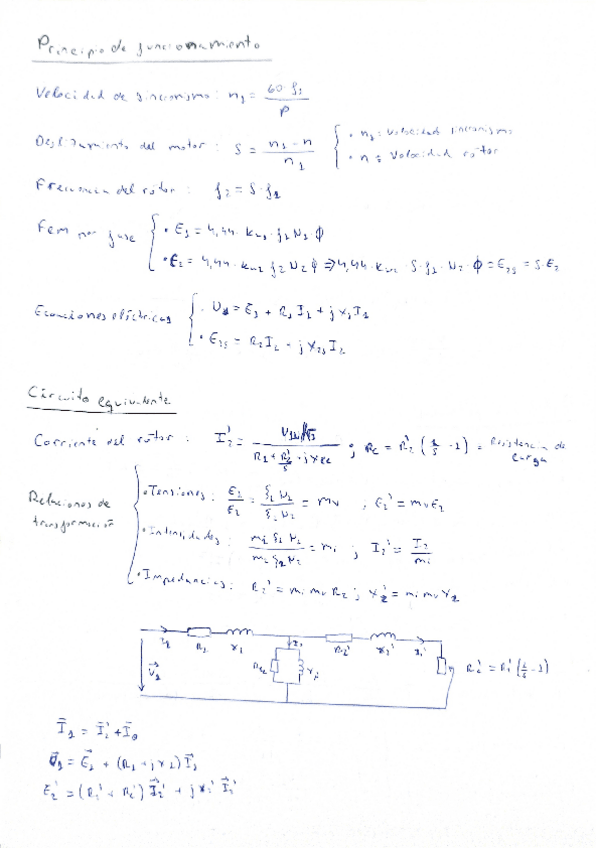 Principio de funcionamiento
Velocidad de sincronismo: n₁ = 60·f₁ / P
Deslizamiento del motor: S = n₁ - n / n₁ { • n₁ = Velocidad sincronismo
• n = Velocidad rotor
Frecuencia del rotor: f₂ = S·f₁
Fem por fase { • E₁ = 4,44·Kw₁·f₁ N₁·ϕ
• E₂ = 4,44·Kw₂ f₂ N₂ ϕ ⇒ 4,44·Kw₂·S·f₁·N₂·ϕ = E₂s = S·E₂
Ecuaciones eléctricas { • U₁ = E₁ + R₁I₁ + jX₁I₁
• E₂s = R₂I₂ + jX₂sI₂
Circuito equivalente
Corriente del rotor: I₂' = / R₁ + R₂'/S + jXcc ; Rc = R₂' (1/S - 1) = Resistencia de
carga
Relaciones de
transformación
• Tensiones: E₁/E₂ = ξ₁N₁/ξ₂N₂ = mv ; E₂' = mvE₂
• Intensidades: m₁ξ₁N₁/m₂ξ₂N₂ = mi ; I₂' = I₂/mi
• Impedancias: R₂' = mi mv R₂ ; X₂' = mi mv X₂
I₁ R₁ X₁ R₂' X₂' I₂' Rc' = R₂' (1/S - 1)
U₁
I₁ = I₂' + I₀
U₁ = E₁ + (R₁ + jX₁) I₁
E₂' = (R₂' + Rc') I₂' + jX₂' I₂'